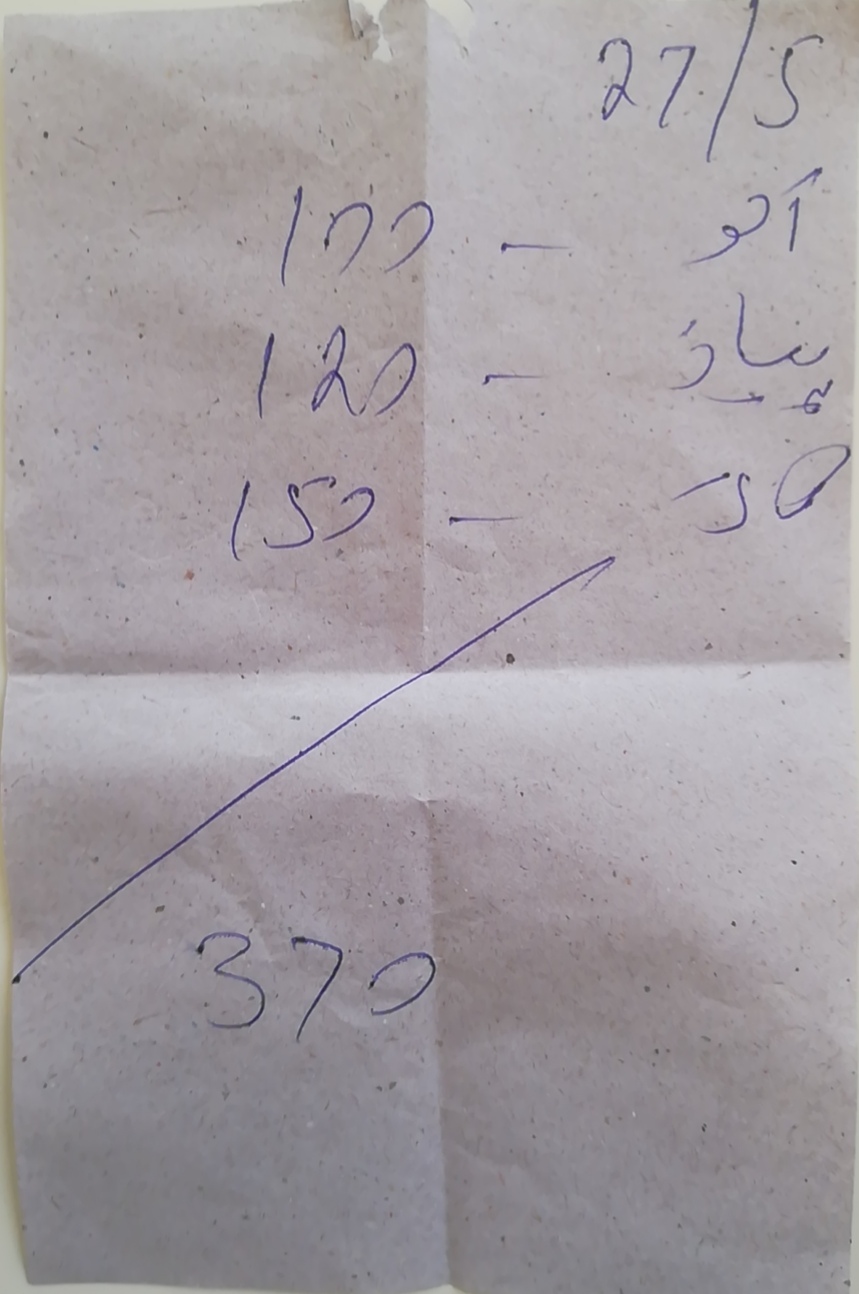 27/5
آلو - 100
پیاز - 120
- 150
370